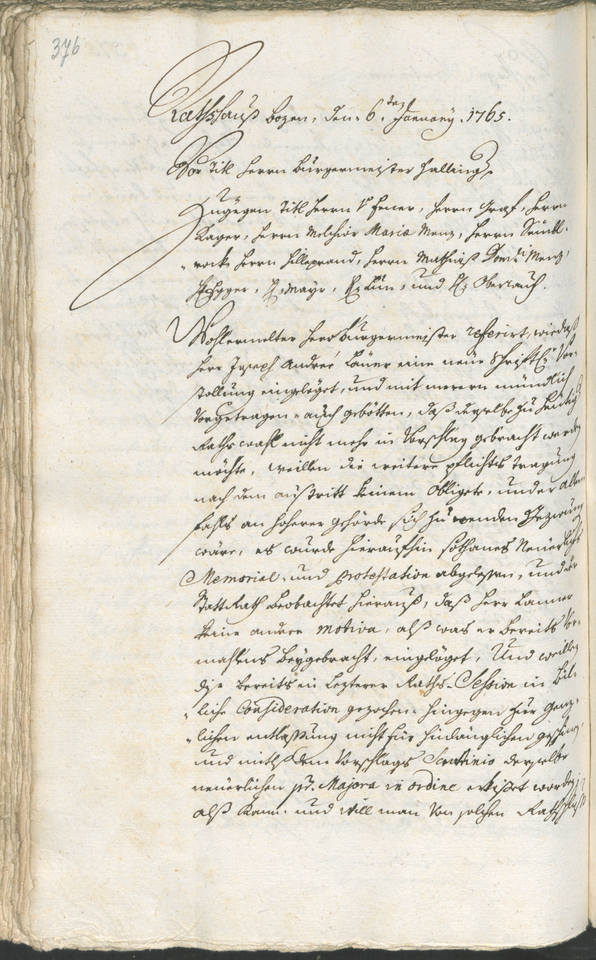 376
Rathshauß Bozen, den 6. January. 1765.
Vor Titl Herrn Burgermeister Halling
Zugegen Titl Herrn V. Feuer, Herrn Graf, Herrn
Kager, Herrn Melchior Maria Menz, Herrn
rock Herrn Hilleprand, Herrn Mathias Menz,
H: Egger, H: Mayr, H: und H: Oberrauch.
Wohlermelter Herr Burgermeister referirt, wie daß
Herr Joseph André Laner eine neue schriftl: Vor-
stellung eingelöget, und mit merern mündlich
Vorgetragen auch gebötten, daß derselbe zu heutig
Raths wahl nicht mehr in Vorschlag gebracht werden
möchte, weillen die weitere pflichts tragung
nach dem austritt keinem Obligat, und er allen
fahls an hoherer gehörde sich zu wenden gezwung
wäre, es wurde hieraufhin sothanes Neuerliche
Memorial, und protestation abgelesen, und der
Statt Rath beobachtet hierauß, daß Herr Lanner
keine andere motiva, alß was er bereits Vor-
mahlens beygebracht, eingelöget, Und weillen
dise bereits in lezterer Raths Session in bil-
liche Consideration gezochen hingegen zur genz-
lichen entlassung nicht für hinlänglichen
und mitls dem Vorschlags Scrutinio derselbe
neuerlichen pr. Majora in ordine erkiset worden,
alß kann und will man von solchen Rathschluß